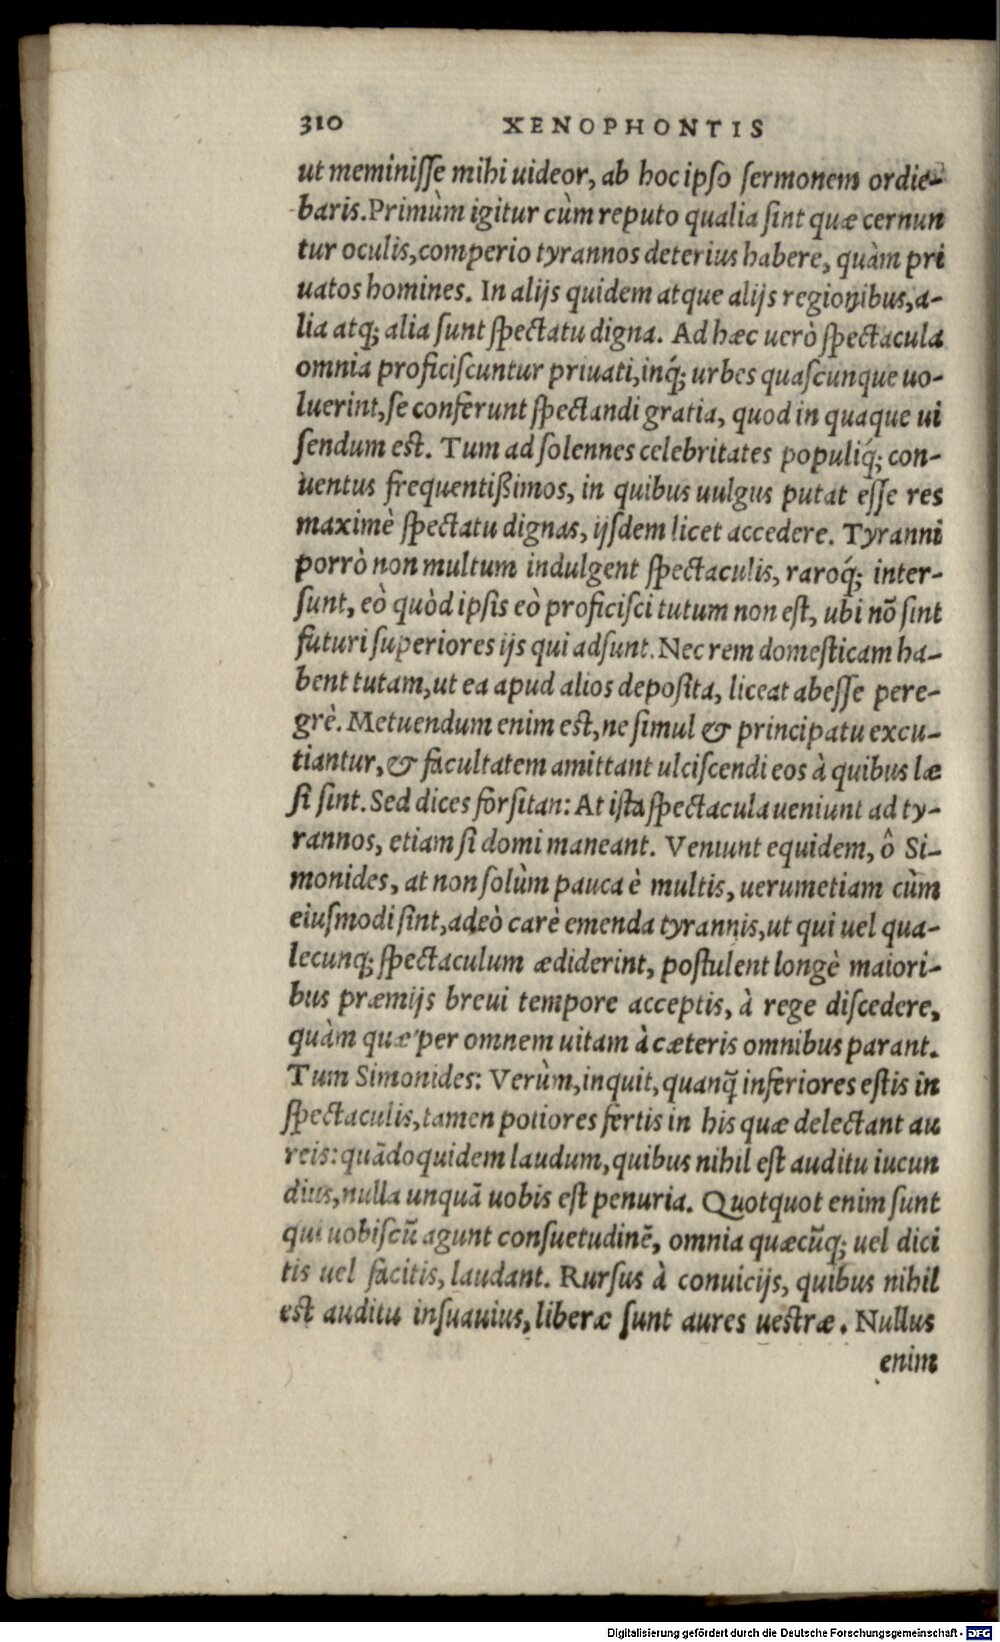 310 XENOPHONTIS
ut meminiſſe mihi uideor, ab hoc ipſo ſermonem ordie-
baris. Primùm igitur cùm reputo qualia ſint quæ cernun
tur oculis, comperio tyrannos deterius habere, quàm pri
uatos homines. In alijs quidem atque alijs regionibus, a-
lia atq́; alia ſunt ſpectatu digna. Ad hæc uerò ſpectacula
omnia proficiſcuntur priuati, inq́; urbes quaſcunque uo-
luerint, ſe conferunt ſpectandi gratia, quod in quaque ui
ſendum eſt. Tum ad ſolennes celebritates populiq́; con-
uentus frequentißimos, in quibus uulgus putat eſſe res
maximè ſpectatu dignas, ijſdem licet accedere. Tyranni
porrò non multum indulgent ſpectaculis, raroq́; inter-
ſunt, eò quòd ipſis eò proficiſci tutum non eſt, ubi nõ ſint
futuri ſuperiores ijs qui adſunt. Nec rem domeſticam ha-
bent tutam, ut ea apud alios depoſita, liceat abeſſe pere-
grè. Metuendum enim eſt, ne ſimul & principatu excu-
tiantur, & facultatem amittant ulciſcendi eos à quibus læ
ſi ſint. Sed dices forſitan: At iſta ſpectacula ueniunt ad ty-
rannos, etiam ſi domi maneant. Veniunt equidem, ô Si-
monides, at non ſolùm pauca è multis, uerumetiam cùm
eiuſmodi ſint, adeò carè emenda tyrannis, ut qui uel qua-
lecunq; ſpectaculum ædiderint, poſtulent longè maiori-
bus præmijs breui tempore acceptis, à rege diſcedere,
quàm quæ per omnem uitam à cæteris omnibus parant.
Tum Simonides: Verùm, inquit, quanq̃ inferiores eſtis in
ſpectaculis, tamen potiores fertis in his quæ delectant au
reis: quãdoquidem laudum, quibus nihil eſt auditu iucun
dius, nulla unquã uobis eſt penuria. Quotquot enim ſunt
qui uobiſcũ agunt conſuetudinẽ, omnia quæcũq; uel dici
tis uel facitis, laudant. Rurſus à conuicijs, quibus nihil
eſt auditu inſuauius, liberæ ſunt aures ueſtræ. Nullus
enim
Digitalisierung gefördert durch die Deutsche Forschungsgemeinschaft - DFG